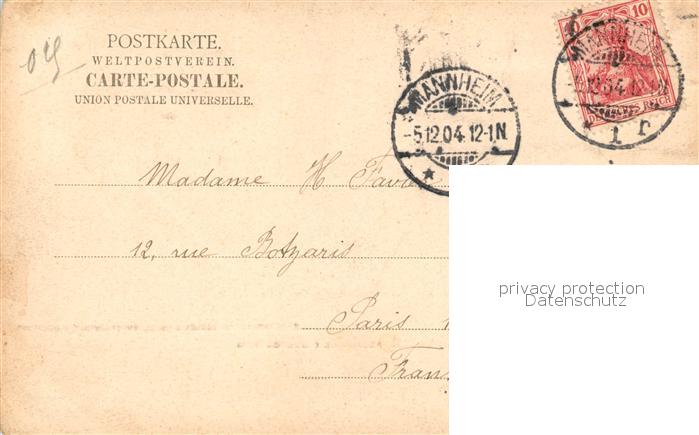 POSTKARTE.
WELTPOSTVEREIN.
CARTE-POSTALE.
UNION POSTALE UNIVERSELLE.
04
10 10
MANNHEIM
DEUTSCHES REICH
1 r
MANNHEIM
-5.12.04.12-1.N
Madame H Favre
12, rue Botzaris
Paris
Fran
privacy protection
Datenschutz